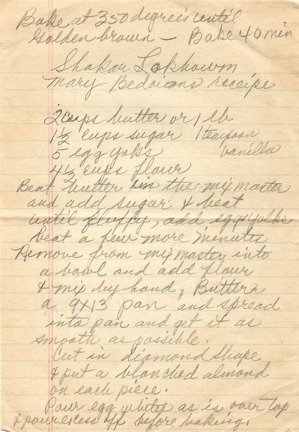 Bake at 350 degrees until
Golden brown — Bake 40 min
Shakar Lokhowm
Mary Bedoians receipe
2 cups butter or 1 lb
1½ cups sugar 1 teaspoon
5 egg yolks vanilla
4½ cups flour
Beat butter in the mixmaster
and add sugar & beat
until fluffy, add egg yolks
beat a few more minutes
Remove from mixmaster into
a bowl and add flour
& mix by hand,
a 9x13 pan and spread
into pan and get it as
smooth as possible.
Cut in diamond shape
& put a blanched almond
on each piece.
Pour egg whites as is over top
& pour excess off before baking.